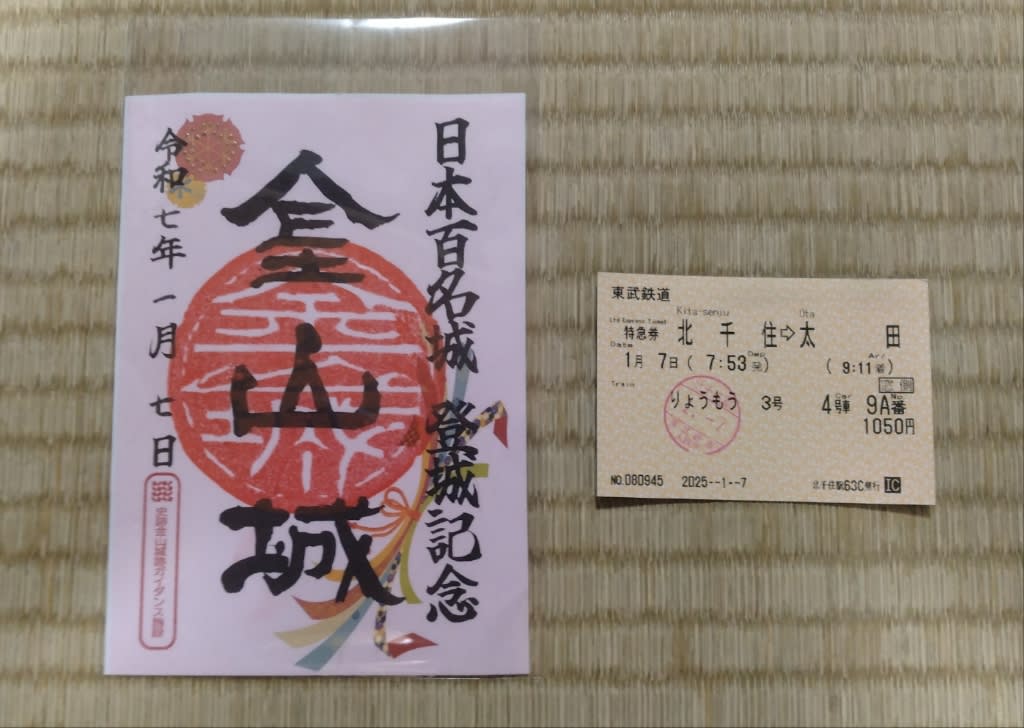 日本百名城 登城記念
金山城
令和七年一月七日
史跡金山城跡ガイダンス施設
東武鉄道
Kita-senju Ota
Ltd Express Ticket
特急券 北千住⇨太田
Date Dep Arr
1月 7日( 7:53発) ( 9:11着)
窓側
Train Car No
りょうもう 3号 4号車 9A番
1050円
NO.080945 2025--1--7 北千住駅63C発行 IC